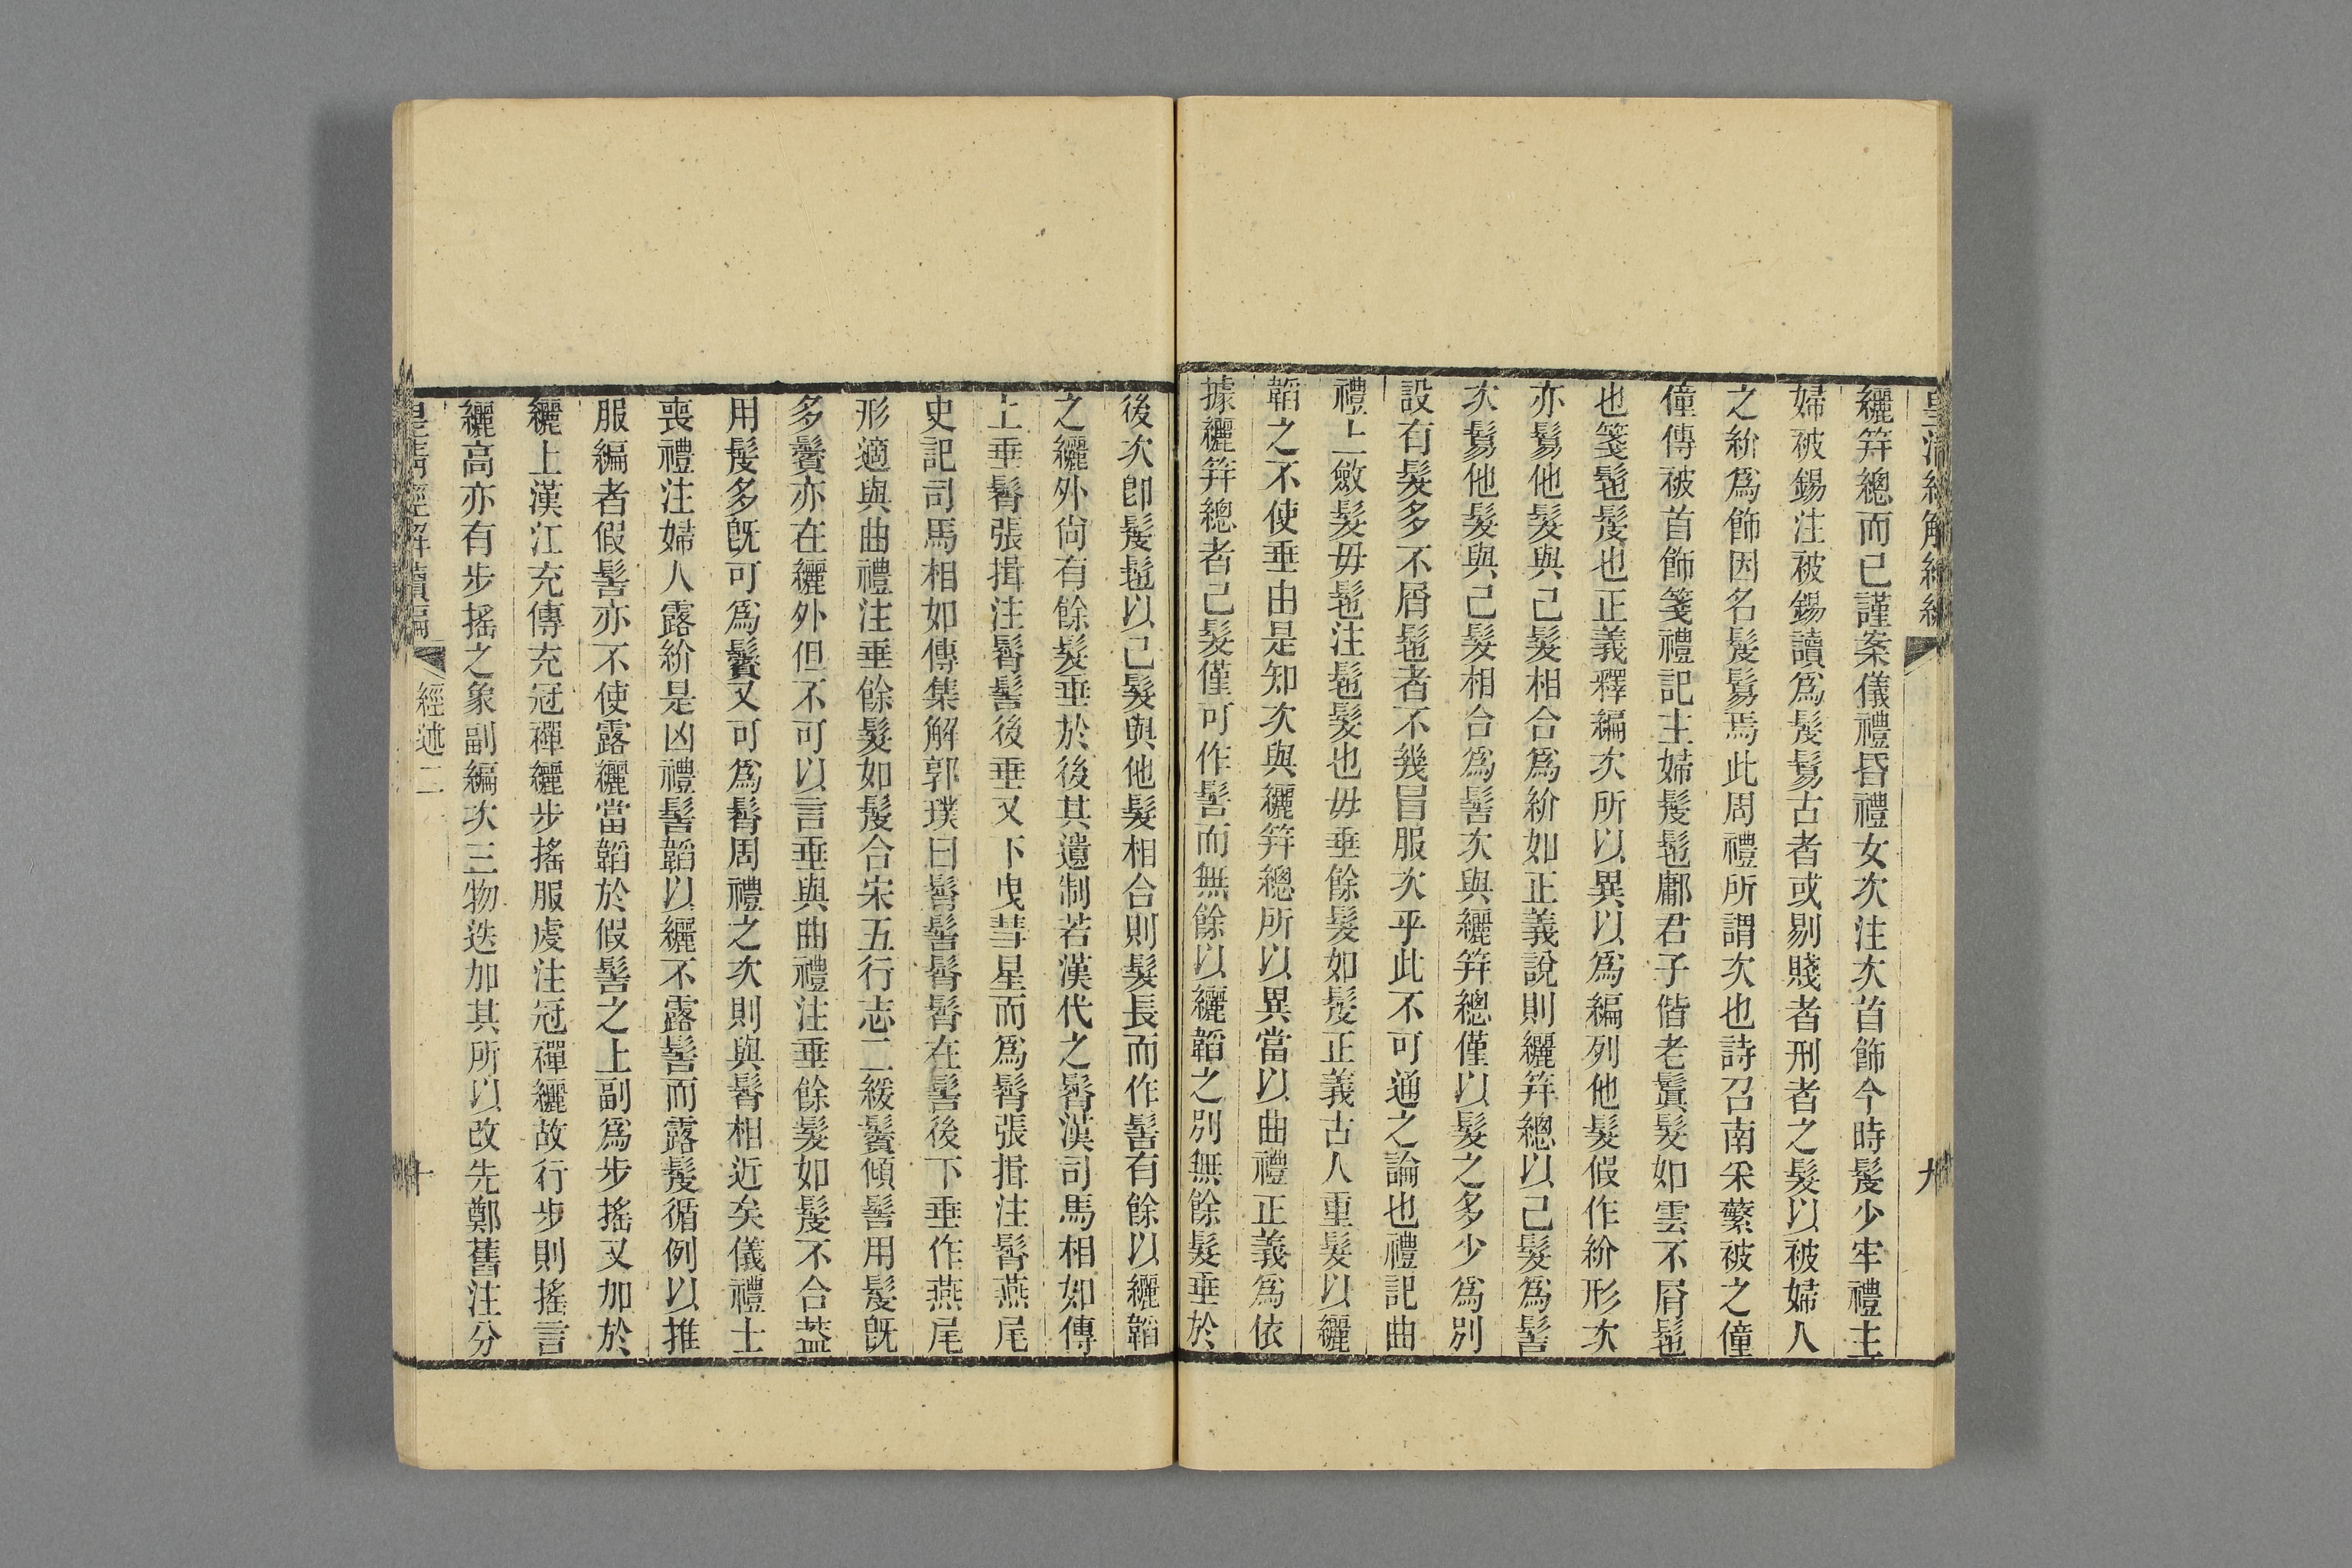 纚笄總而已謹案儀禮昏禮女次注次首飾今時髲少牢禮主
婦被錫注被錫讀爲髲鬄古者或剔賤者刑者之髮以被婦人
之紒爲飾因名髲鬄焉此周禮所謂次也詩召南采蘩被之僮
僮傳被首飾箋禮記主婦髲髢鄘君子偕老鬒髮如雲不屑髢
也箋髢髲也正義釋編次所以異以爲編列他髮假作紒形次
亦鬄他髮與己髮相合爲紒如正義說則纚笄總以己髮爲髻
次鬄他髮與己髮相合爲髻次與纚笄總僅以髮之多少爲別
設有髮多不屑髢者不幾冒服次乎此不可通之論也禮記曲
禮上斂髮毋髢注髢髮也毋垂餘髮如髲正義古人重髮以纚
韜之不使垂由是知次與纚笄總所以異當以曲禮正義爲依
據纚笄總者己髮僅可作髻而無餘以纚韜之別無餘髮垂於
九
後次卽髲髢以己髮與他髮相合則髮長而作髻有餘以纚韜
之纚外尙有餘髮垂於後其遺制若漢代之髾漢司馬相如傳
上垂髾張揖注髾髻後垂又下曳彗星而爲髾張揖注髾燕尾
史記司馬相如傳集解郭璞曰髾髻髾髾在髻後下垂作燕尾
形適與曲禮注垂餘髮如髲合宋五行志二緩鬢傾髻用髲旣
多鬢亦在纚外但不可以言垂與曲禮注垂餘髮如髲不合葢
用髲多旣可爲鬢又可爲髾周禮之次則與髾相近矣儀禮士
喪禮注婦人露紒是凶禮髻韜以纚不露髻而露髮循例以推
服編者假髻亦不使露纚當韜於假髻之上副爲步搖又加於
纚上漢江充傳充冠襌纚步搖服虔注冠襌纚故行步則搖言
纚高亦有步搖之象副編次三物迭加其所以改先鄭舊注分
皇淸經解續編
經述二
十